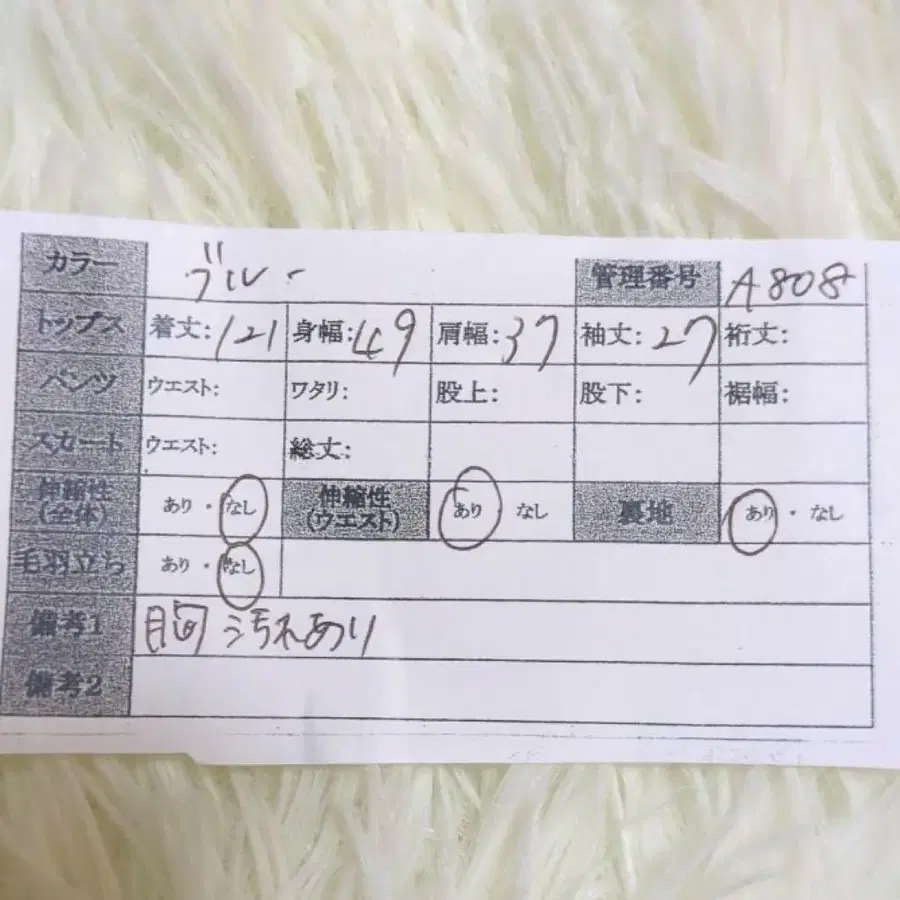 カラー ブルー 管理番号 A808
トップス 着丈:121 身幅:49 肩幅:37 袖丈:27 裄丈:
パンツ ウエスト: ワタリ: 股上: 股下: 裾幅:
スカート ウエスト: 総丈:
伸縮性 (全体) あり・なし 伸縮性 (ウエスト) あり・なし 裏地 あり・なし
毛羽立ち あり・なし
備考1 胸 汚れあり
備考2